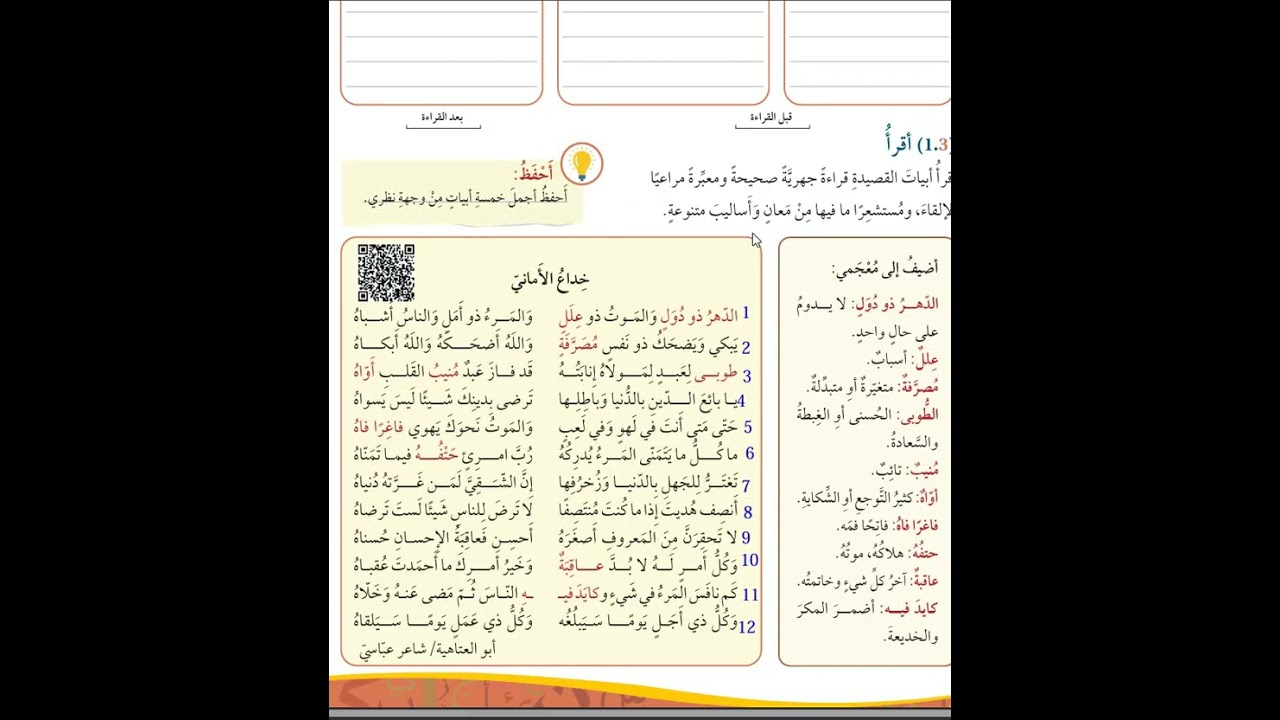 قبل القراءة
بعد القراءة
(1.3) أقرأُ
قرأُ أبياتَ القصيدةِ قراءةً جهريَّةً صحيحةً ومعبِّرةً مراعيًا
لإلقاءَ، ومُستشعِرًا ما فيها مِنْ مَعانٍ وَأَساليبَ متنوعةٍ.
أَحْفَظُ:
أَحفظُ أجملَ خمسةِ أبياتٍ مِنْ وجهةِ نظري.
أضيفُ إلى مُعْجَمي:
الدّهرُ ذو دُوَلٍ: لا يدومُ
على حالٍ واحدٍ.
عِللٌ: أسبابٌ.
مُصرَّفةٌ: متغيّرةٌ أوِ متبدِّلةٌ.
الطُّوبى: الحُسنى أوِ الغِبطةُ
والسَّعادةُ.
مُنيبٌ: تائِبٌ.
أوّاهٌ: كثيرُ التَّوجعِ أوِ الشِّكايةِ.
فاغرًا فاهُ: فاتِحًا فمَه.
حتفُهُ: هلاكُهُ، موتُهُ.
عاقبةٌ: آخرُ كلِّ شيءٍ وخاتمتُه.
كايدَ فيه: أضمرَ المكرَ
والخديعةَ.
خِداعُ الأَمانيّ
1 الدّهرُ ذو دُوَلٍ وَالمَوتُ ذو عِلَلٍ وَالمَرءُ ذو أَمَلٍ وَالناسُ أَشباهُ
2 يَبكي وَيَضحَكُ ذو نَفسٍ مُصَرَّفَةٍ وَاللَهُ أَضحَكَهُ وَاللَهُ أَبكاهُ
3 طوبى لِعَبدٍ لِمَولاهُ إِنابَتُهُ قَد فازَ عَبدٌ مُنيبُ القَلبِ أَوّاهُ
4 يا بائِعَ الدّينِ بالدُّنيا وَباطِلِها تَرضى بِدينِكَ شَيئًا لَيسَ يَسواهُ
5 حَتّى مَتى أَنتَ في لَهوٍ وَفي لَعِبٍ وَالمَوتُ نَحوَكَ يَهوي فاغِرًا فاهُ
6 ما كُلُّ ما يَتَمَنّى المَرءُ يُدرِكُهُ رُبَّ امرِئٍ حَتْفُهُ فيما تَمَنّاهُ
7 تَغتَرُّ لِلجَهلِ بِالدّنيا وَزُخرُفِها إِنَّ الشَّقِيَّ لَمَن غَرَّتهُ دُنياهُ
8 أَنصِف هُديتَ إِذا ما كُنتَ مُنتَصِفًا لا تَرضَ لِلناسِ شَيئًا لَستَ تَرضاهُ
9 لا تَحقِرَنَّ مِنَ المَعروفِ أَصغَرَهُ أَحسِن فَعاقِبَةُ الإِحسانِ حُسناهُ
10 وَكُلُّ أَمرٍ لَهُ لا بُدَّ عاقِبَةٌ وَخَيرُ أَمرِكَ ما أَحمَدتَ عُقباهُ
11 كَم نافَسَ المَرءُ في شَيءٍ وكايَدَ فيـ ـهِ النّاسَ ثُمَّ مَضى عَنهُ وَخَلّاهُ
12 وَكُلُّ ذي أَجَلٍ يَومًا سَيَبلُغُه وَكُلُّ ذي عَمَلٍ يَومًا سَيَلقاهُ
أبو العتاهية/ شاعر عبّاسيّ